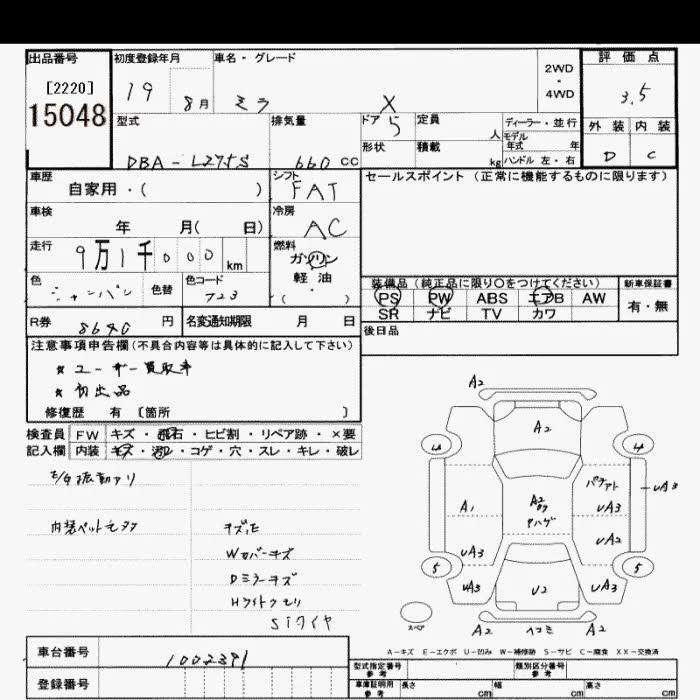 出品番号 初度登録年月 車名・グレード 評価点
[2220] 19 8月 ミラ X 2WD・4WD 3.5
15048
型式 排気量 ドア 定員 ディーラー・並行 外装 内装
DBA-L275S 660 CC 5 人 モデル年式 年 D C
形状 積載 kg ハンドル 左・右
車歴 シフト セールスポイント(正常に機能するものに限ります)
自家用・( ) FAT
車検 冷房
年 月( 日) AC
走行 燃料
9万1千000km ガソリン
軽・油
( )
色 色替 色コード 装備品(純正品に限り○をつけてください) 新車保証書
シャンパン T23 PS PW ABS エアB AW 有・無
SR ナビ TV カワ
R券 8640 円 名変通知期限 月 日 後日品
注意事項申告欄(不具合内容等は具体的に記入して下さい)
★ ユーザー買取車
★ 初出品
修復歴 有 [箇所 ]
検査員 FW キズ・飛石・ヒビ割・リペア跡・×要
記入欄 内装 キズ・コゲ・穴・スレ・キレ・破レ
E/G振動アリ
内装ペットモヨウ
Wカバーキズ
Dミラーキズ
Hライトクモリ
Siタイヤ
A2
A2
4 4
A2
A1 UA3 UA3
UA3 UA2
5 5
UA3 U2 UA3
スペア A2 ヘコミ A2
A-キズ E-エクボ U-凹み W-補修跡 S-サビ C-腐食 XX-交換済
車台番号 1002391
登録番号
型式指定番号 参考 類別区分番号 参考
車庫証明用 参考 長さ cm 幅 cm 高さ cm